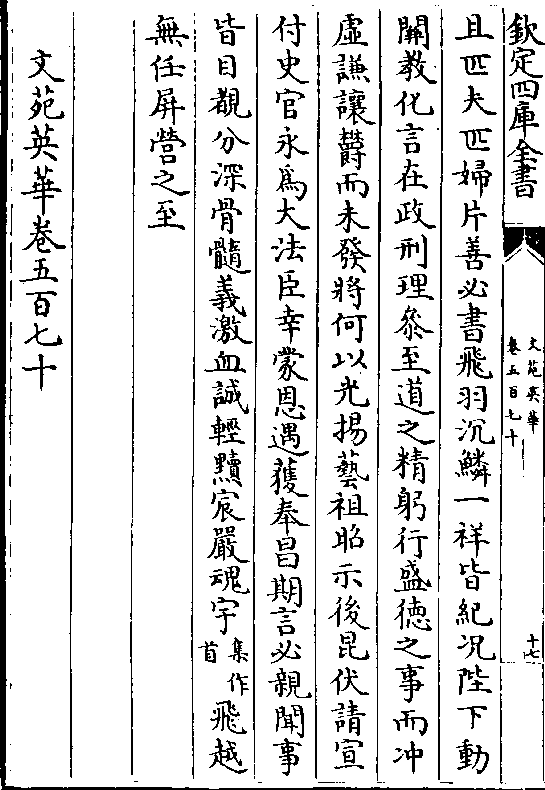 欽定四庫全書
文苑英華
卷五百七十
十七
且匹夫匹婦片善必書飛羽沉鱗一祥皆紀况陛下動
闗教化言在政刑理叅至道之精躬行盛德之事而冲
虚謙讓欝而未發將何以光揚藝祖昭示後昆伏請宣
付史官永為大法臣幸蒙恩遇獲奉昌期言必親聞事
皆目覩分深骨髓義激血誠輕黷宸嚴魂宇集作首飛越
無任屏營之至
文苑英華卷五百七十